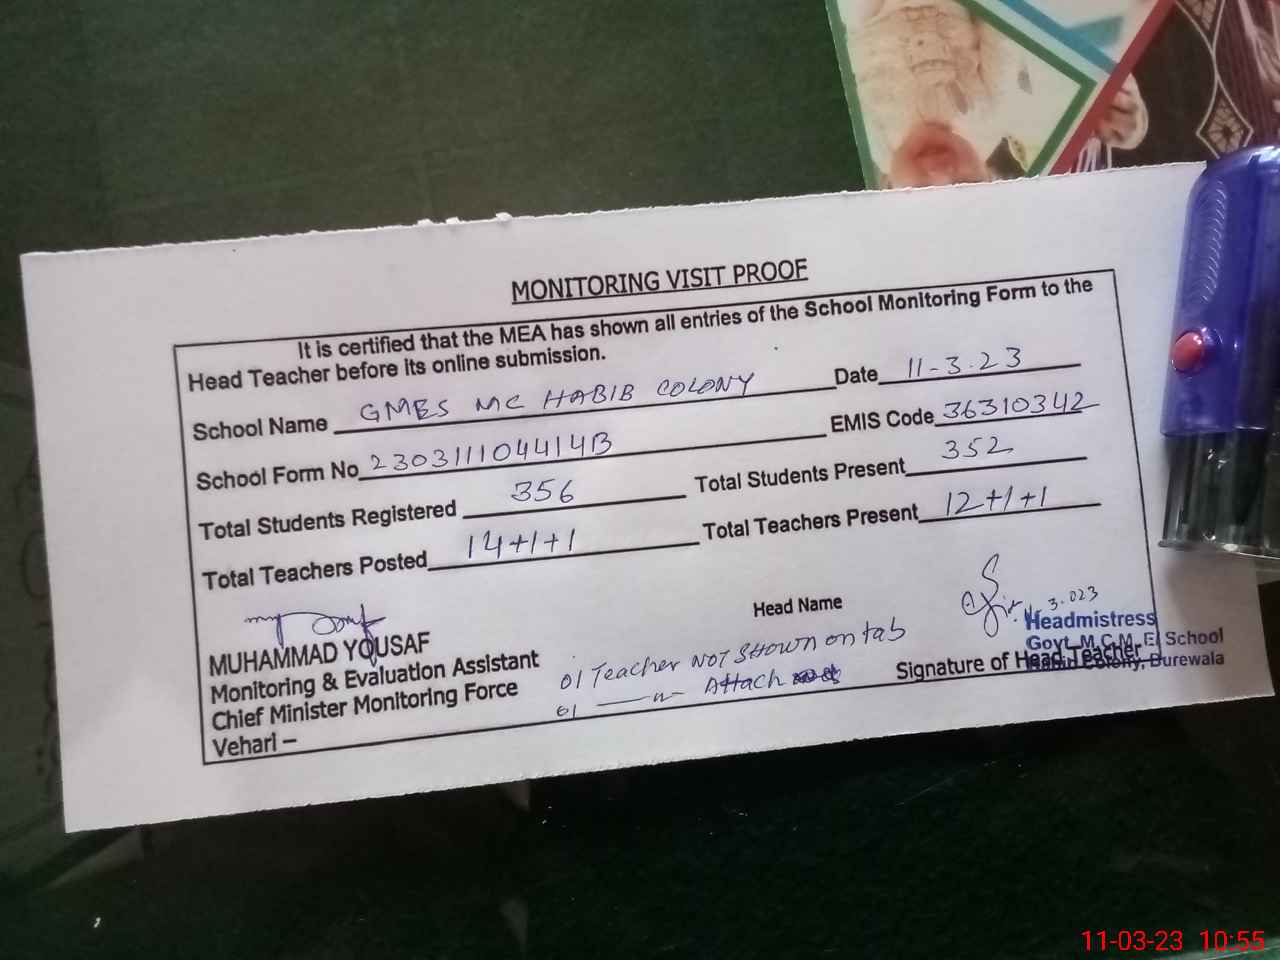 MONITORING VISIT PROOF
It is certified that the MEA has shown all entries of the School Monitoring Form to the
Head Teacher before its online submission.
School Name GMES MC HABIB COLONY Date 11-3-23
School Form No 230311104414B EMIS Code 36310342
Total Students Registered 356 Total Students Present 352
Total Teachers Posted 14+1+1 Total Teachers Present 12+1+1
Head Name
3.023
MUHAMMAD YOUSAF
Headmistress
Monitoring & Evaluation Assistant
01 Teacher NOT SHOWN on tab
Govt. M.C.M.E/ School
Chief Minister Monitoring Force
01 —"— Attach
Signature of Head Teacher
Colony, Burewala
Vehari –
11-03-23 10:55